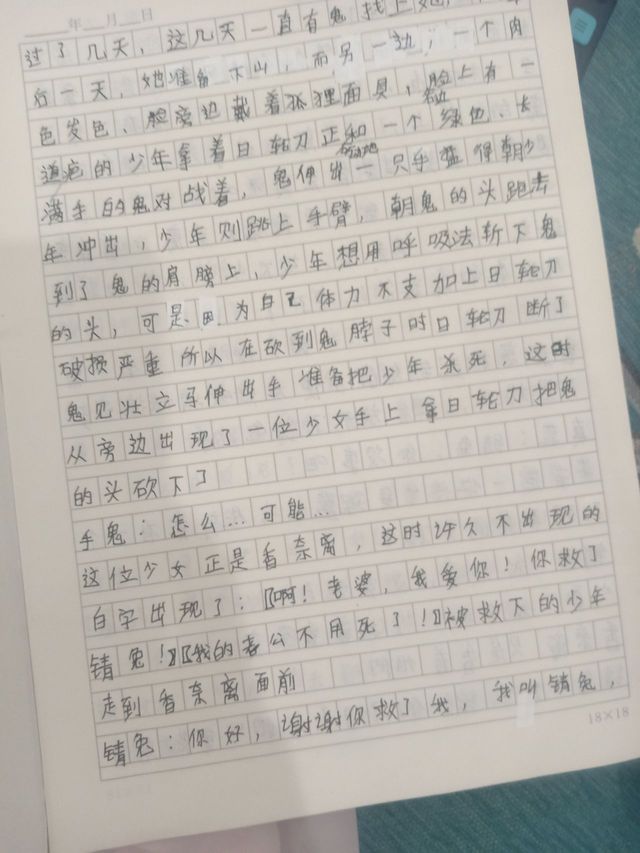 年 月 日
过了几天，这几天一直有鬼找上她，
后一天，她准备下山，而另一边，一个肉
色发色、脸旁边戴着狐狸面具，脸上有一
道疤的少年拿着日轮刀正和一个绿色、长
满手的鬼对战着，鬼伸出一只手猛得朝少
年冲出，少年则跳上手臂，朝鬼的头跑去
到了鬼的肩膀上，少年想用呼吸法斩下鬼
的头，可是因为自己体力不支加上日轮刀
破损严重所以在砍到鬼脖子时日轮刀断了
鬼见壮立马伸出手准备把少年杀死，这时
从旁边出现了一位少女手上拿日轮刀把鬼
的头砍下了
手鬼：怎么…可能…
这位少女正是香奈离，这时许久不出现的
白字出现了：〖啊！老婆，我爱你！你救了
锖兔！〗〖我的老公不用死了！〗被救下的少年
走到香奈离面前
锖兔：你好，谢谢你救了我，我叫锖兔，
18×18